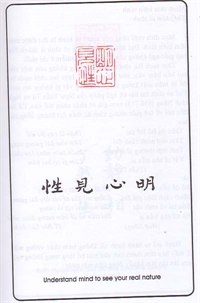 明心
見性
明心見性
Understand mind to see your real nature